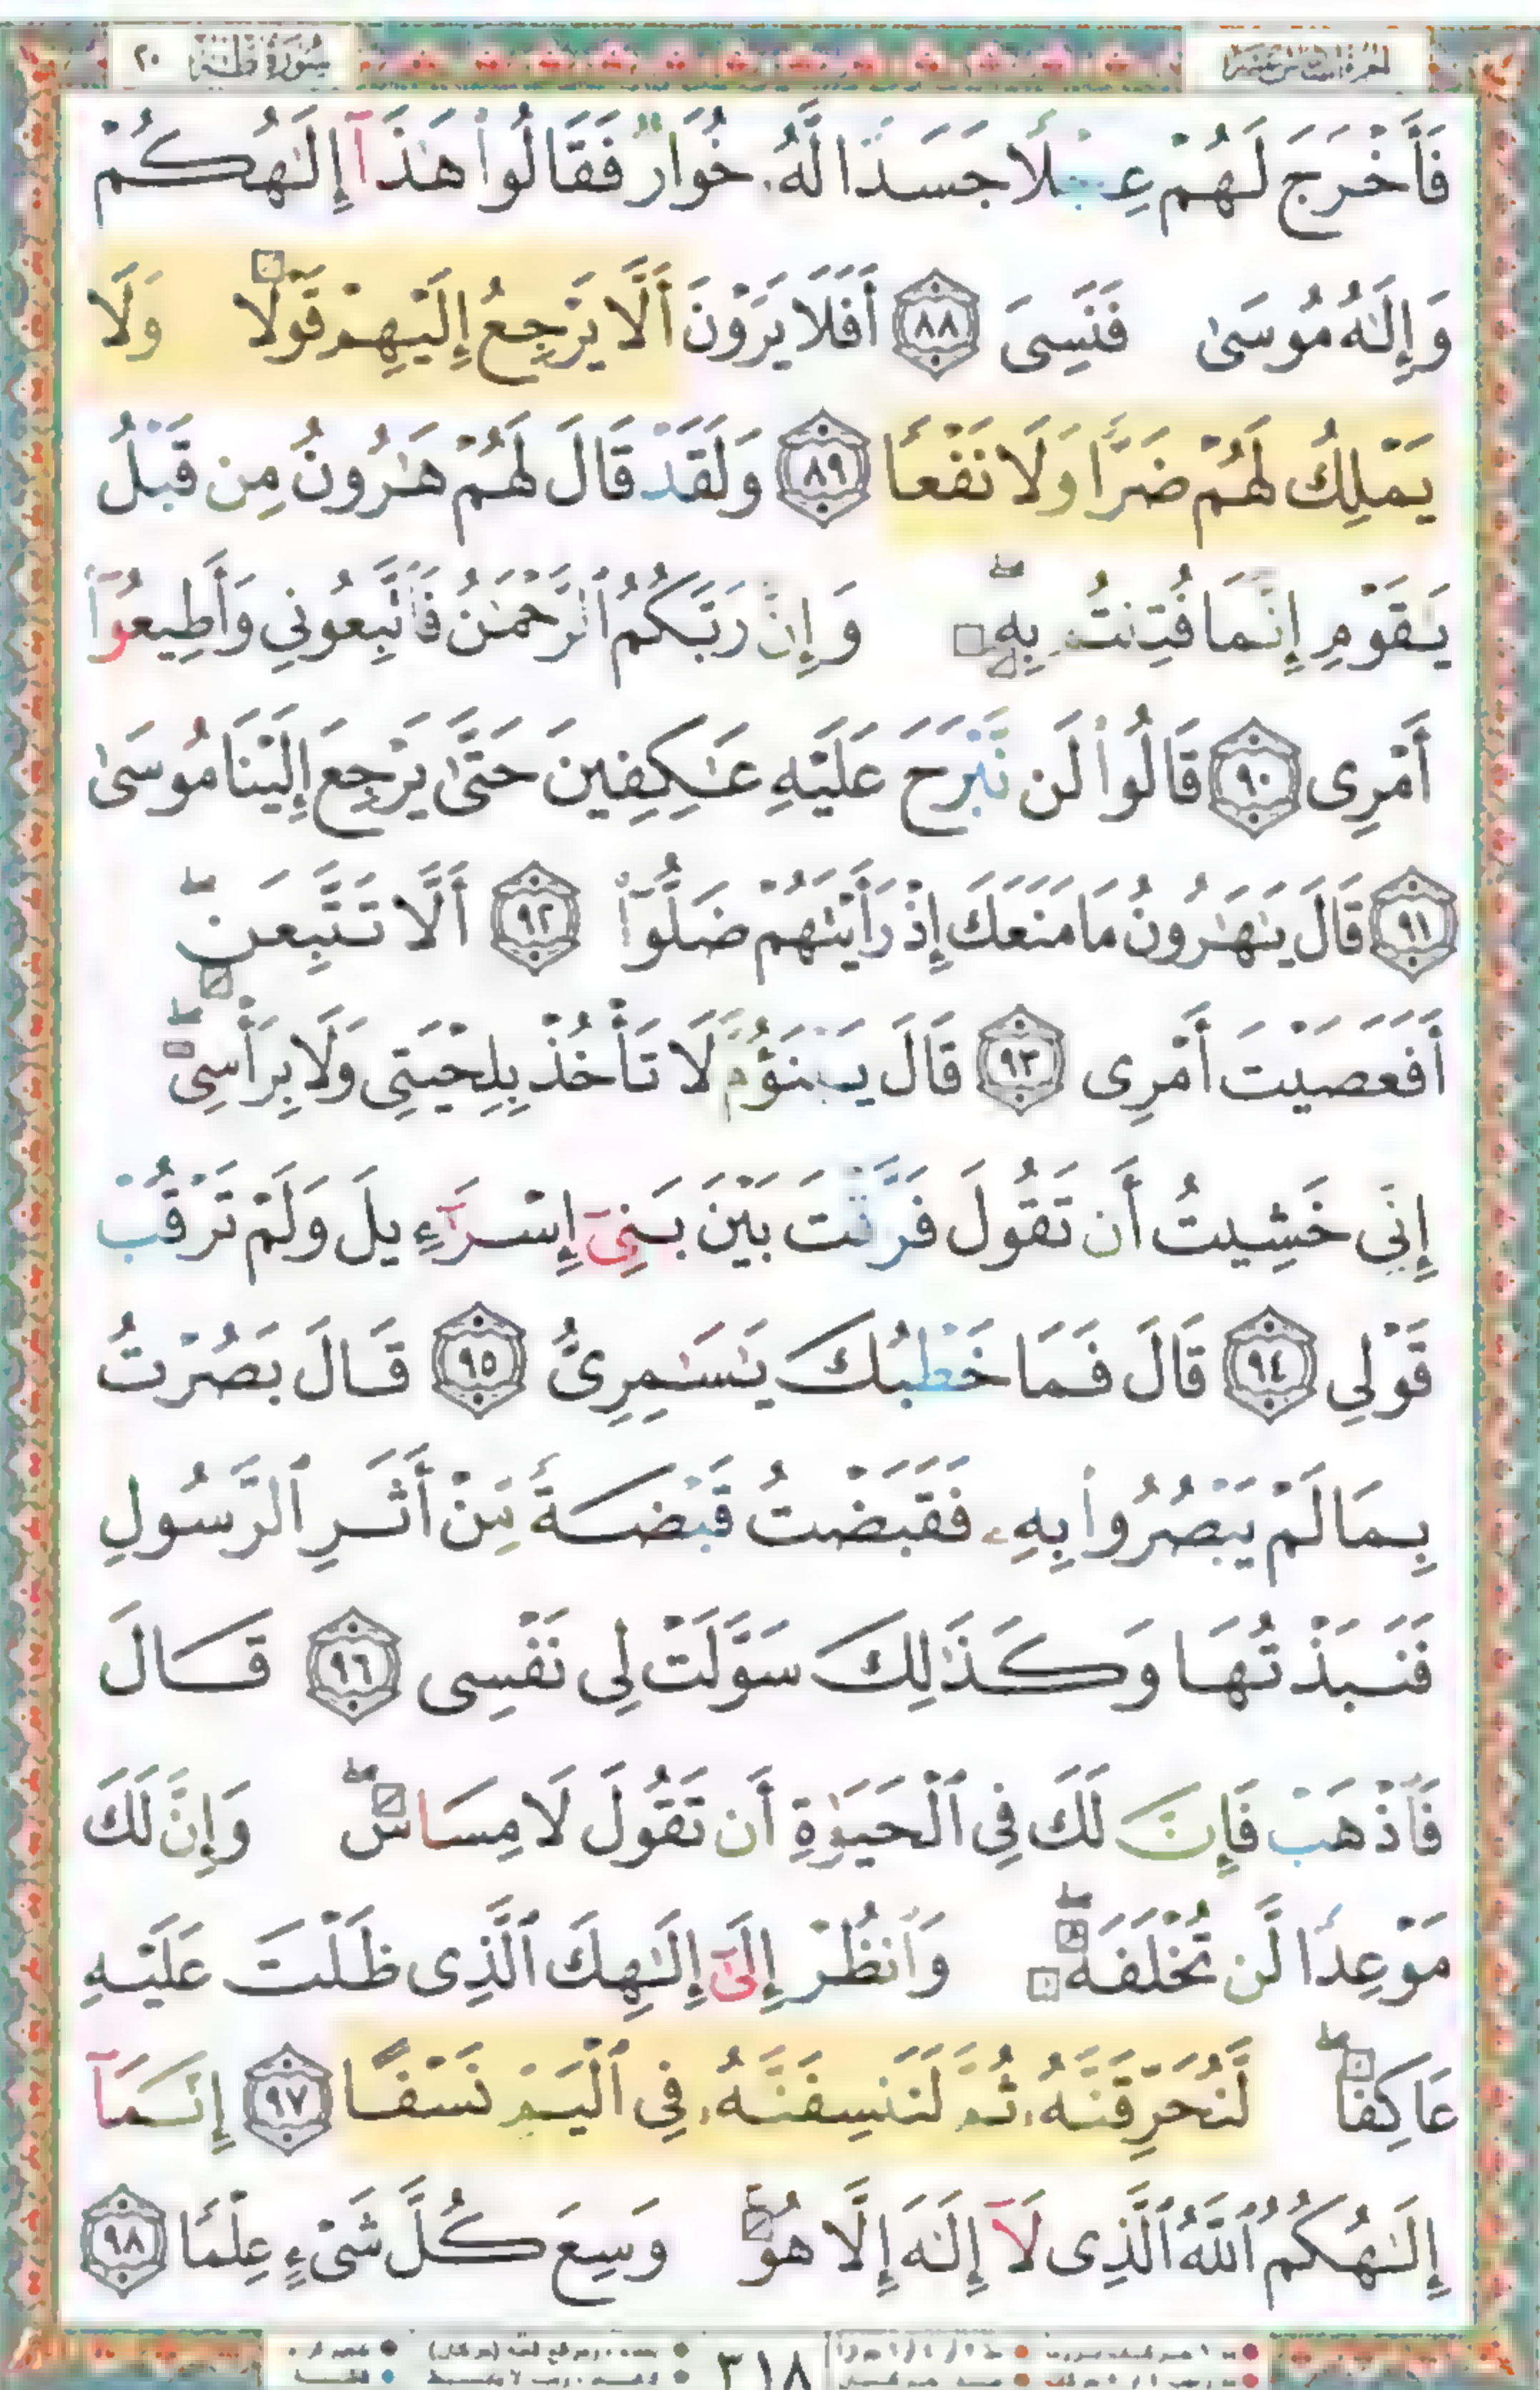 سُورَةُ طه ٢٠
فَأَخْرَجَ لَهُمْ عِجْلًا جَسَدًا لَّهُۥ خُوَارٌ فَقَالُوا۟ هَـٰذَآ إِلَـٰهُكُمْ
وَإِلَـٰهُ مُوسَىٰ فَنَسِىَ ٨٨ أَفَلَا يَرَوْنَ أَلَّا يَرْجِعُ إِلَيْهِمْ قَوْلًا وَلَا
يَمْلِكُ لَهُمْ ضَرًّا وَلَا نَفْعًا ٨٩ وَلَقَدْ قَالَ لَهُمْ هَـٰرُونُ مِن قَبْلُ
يَـٰقَوْمِ إِنَّمَا فُتِنتُم بِهِۦ ۖ وَإِنَّ رَبَّكُمُ ٱلرَّحْمَـٰنُ فَٱتَّبِعُونِى وَأَطِيعُوٓا۟
أَمْرِى ٩٠ قَالُوا۟ لَن نَّبْرَحَ عَلَيْهِ عَـٰكِفِينَ حَتَّىٰ يَرْجِعَ إِلَيْنَا مُوسَىٰ
٩١ قَالَ يَـٰهَـٰرُونُ مَا مَنَعَكَ إِذْ رَأَيْتَهُمْ ضَلُّوٓا۟ ٩٢ أَلَّا تَتَّبِعَنِ ۖ
أَفَعَصَيْتَ أَمْرِى ٩٣ قَالَ يَبْنَؤُمَّ لَا تَأْخُذْ بِلِحْيَتِى وَلَا بِرَأْسِىٓ ۖ
إِنِّى خَشِيتُ أَن تَقُولَ فَرَّقْتَ بَيْنَ بَنِىٓ إِسْرَٰٓءِيلَ وَلَمْ تَرْقُبْ
قَوْلِى ٩٤ قَالَ فَمَا خَطْبُكَ يَـٰسَـٰمِرِىُّ ٩٥ قَالَ بَصُرْتُ
بِمَا لَمْ يَبْصُرُوا۟ بِهِۦ فَقَبَضْتُ قَبْضَةً مِّنْ أَثَرِ ٱلرَّسُولِ
فَنَبَذْتُهَا وَكَذَٰلِكَ سَوَّلَتْ لِى نَفْسِى ٩٦ قَالَ
فَٱذْهَبْ فَإِنَّ لَكَ فِى ٱلْحَيَوٰةِ أَن تَقُولَ لَا مِسَاسَ ۖ وَإِنَّ لَكَ
مَوْعِدًا لَّن تُخْلَفَهُۥ ۖ وَٱنظُرْ إِلَىٰٓ إِلَـٰهِكَ ٱلَّذِى ظَلْتَ عَلَيْهِ
عَاكِفًا ۖ لَّنُحَرِّقَنَّهُۥ ثُمَّ لَنَنسِفَنَّهُۥ فِى ٱلْيَمِّ نَسْفًا ٩٧ إِنَّمَآ
إِلَـٰهُكُمُ ٱللَّهُ ٱلَّذِى لَآ إِلَـٰهَ إِلَّا هُوَ ۚ وَسِعَ كُلَّ شَىْءٍ عِلْمًا ٩٨
٣١٨